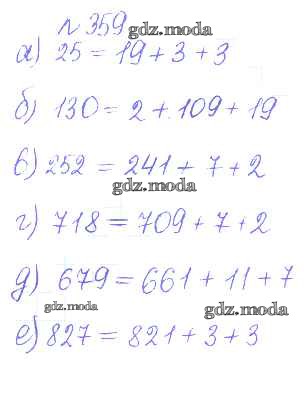 № 359 gdz.moda
а) 25 = 19 + 3 + 3
б) 130 = 2 + 109 + 19
в) 252 = 241 + 7 + 2
gdz.moda
г) 718 = 709 + 7 + 2
д) 679 = 661 + 11 + 7
gdz.moda gdz.moda
е) 827 = 821 + 3 + 3